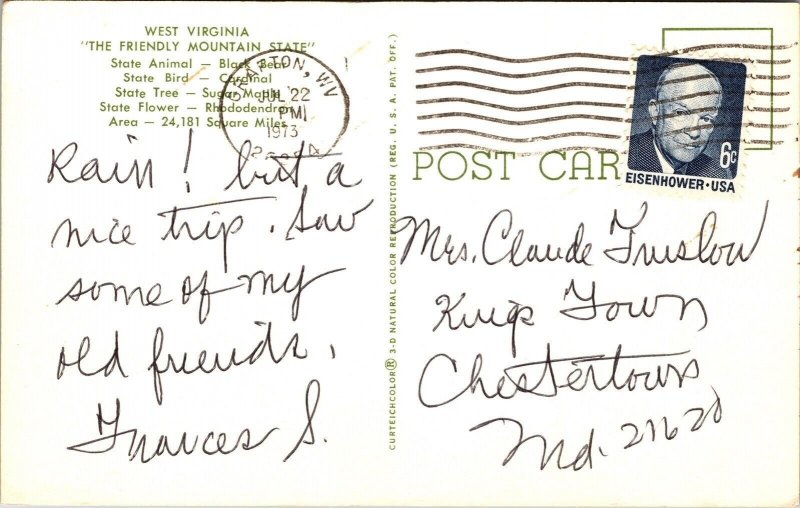 WEST VIRGINIA
"THE FRIENDLY MOUNTAIN STATE"
State Animal — Black Bear
State Bird — Cardinal
State Tree — Sugar Maple
State Flower — Rhododendron
Area — 24,181 Square Miles
JUL 22
PM
1973
Rain! but a
nice trip. Saw
some of my
old friends.
Frances S.
CURTEICHCOLOR® 3-D NATURAL COLOR REPRODUCTION (REG. U. S. A. PAT. OFF.)
POST CAR
6c
EISENHOWER·USA
Mrs. Claude Truslow
Kings Town
Chestertown
Md. 21620